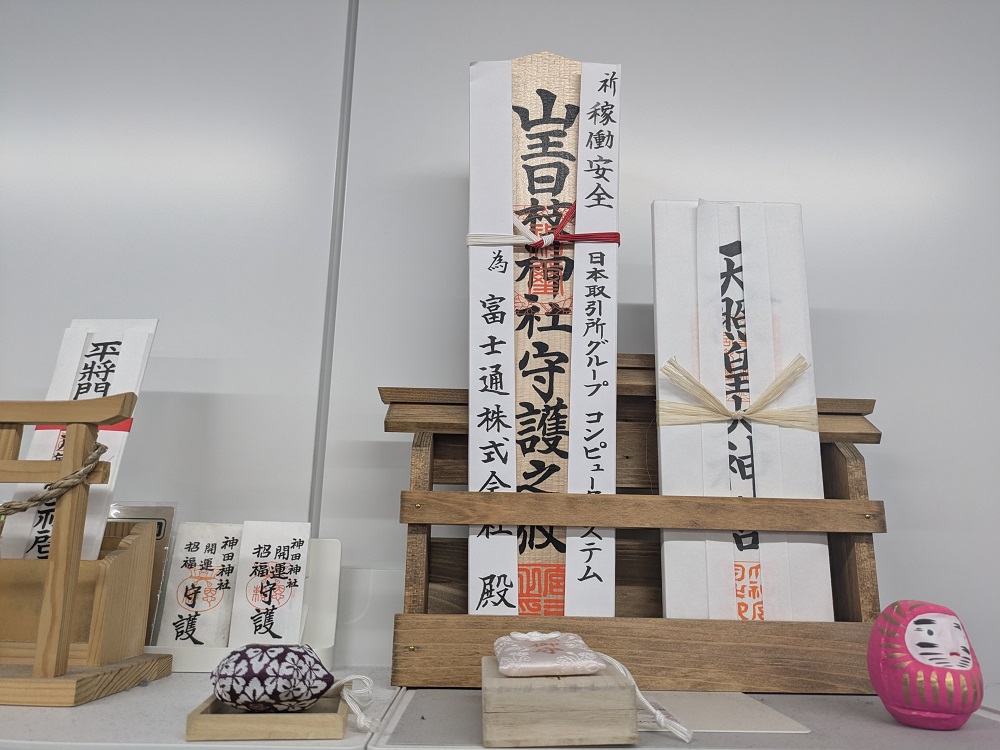 祈 稼働安全
日本取引所グループ コンピュータシステム
山王日枝神社守護之攸
為 富士通株式会社 殿
天照皇大神宮
平将門
神田神社
開運
招福
守護
神田神社
開運
招福
守護